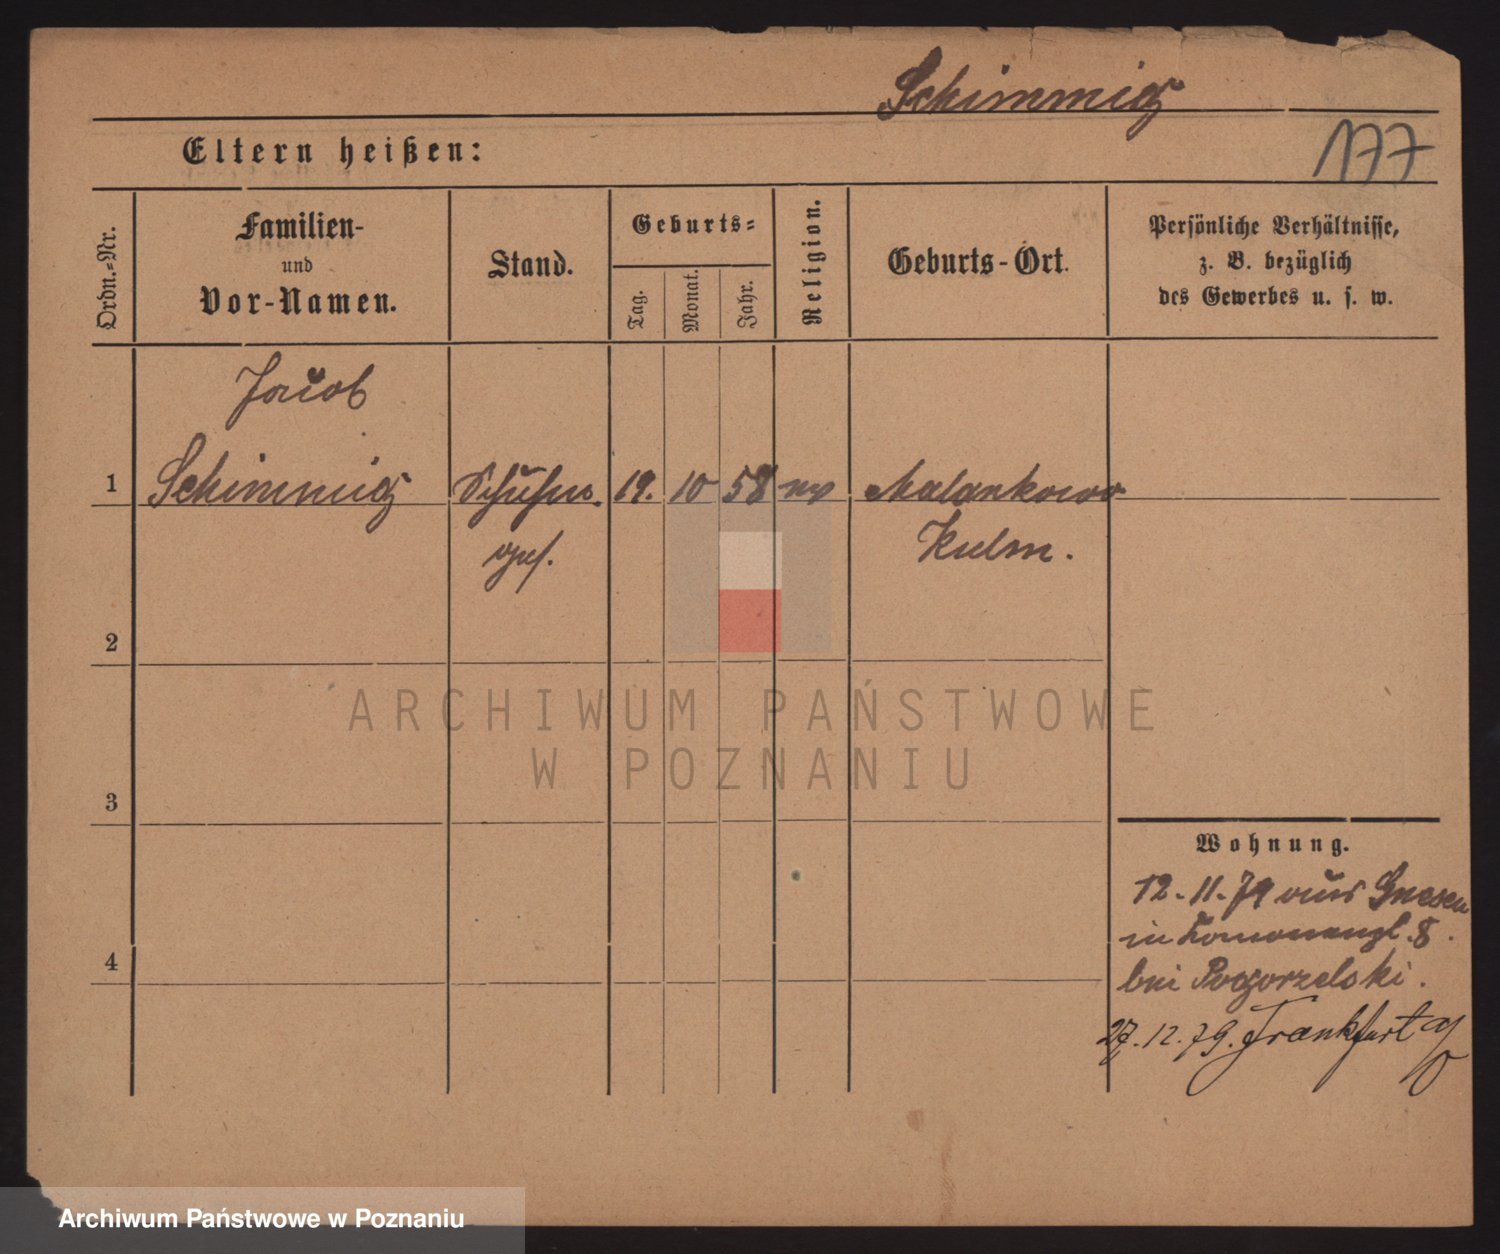 Schimmig
177
Eltern heißen:
Ordn.-Nr.
Familien-
und
Vor-Namen.
Stand.
Geburts-
Tag.
Monat.
Jahr.
Religion.
Geburts-Ort.
Persönliche Verhältnisse,
z. B. bezüglich
des Gewerbes u. s. w.
Jacob
1 Schimmig Schuhm. 19. 10 58 Malankowo
ges. Kulm.
2
ARCHIWUM PAŃSTWOWE
W POZNANIU
3
Wohnung.
12. 11. 79 aus Gnesen
in 8.
bei Pogorzelski.
4
27. 12. 79. Frankfurt a/O
Archiwum Państwowe w Poznaniu